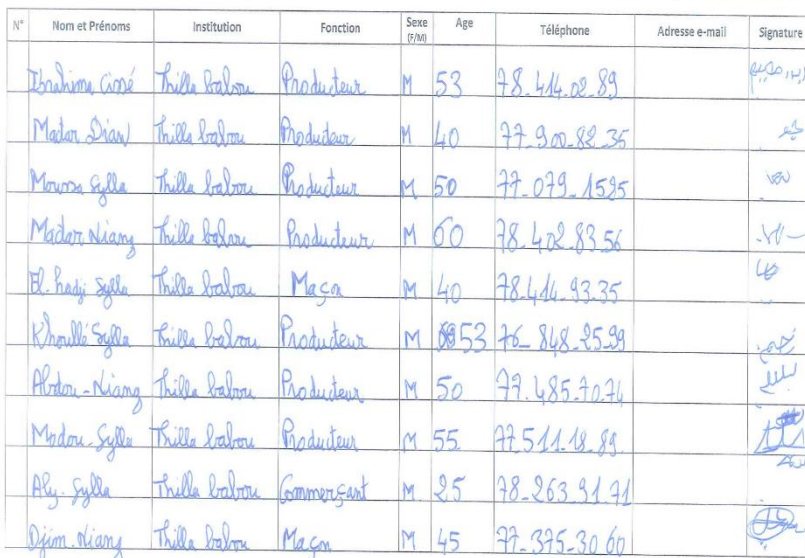 N° Nom et Prénoms Institution Fonction Sexe (F/M) Age Téléphone Adresse e-mail Signature
Ibrahima Cissé Thilla babou Producteur M 53 78.414.02.89
Madar Diaw Thilla babou Producteur M 40 77_900_82_35
Moussa Sylla Thilla babou Producteur M 50 77_079_1525
Madar Niang Thilla babou Producteur M 60 78.402.83.56
El. hadji Sylla Thilla babou Maçon M 40 78.414_93.35
Khoullé Sylla Thilla babou Producteur M 53 76_848_25.99
Abdou-Niang Thilla babou Producteur M 50 77.485.70.74
Modou-Sylla Thilla babou Producteur M 55 77.511.18.89
Aly. Sylla Thilla babou Commerçant M 25 78_263_91_71
Djim. Niang Thilla babou Maçon M 45 77_375_30 60